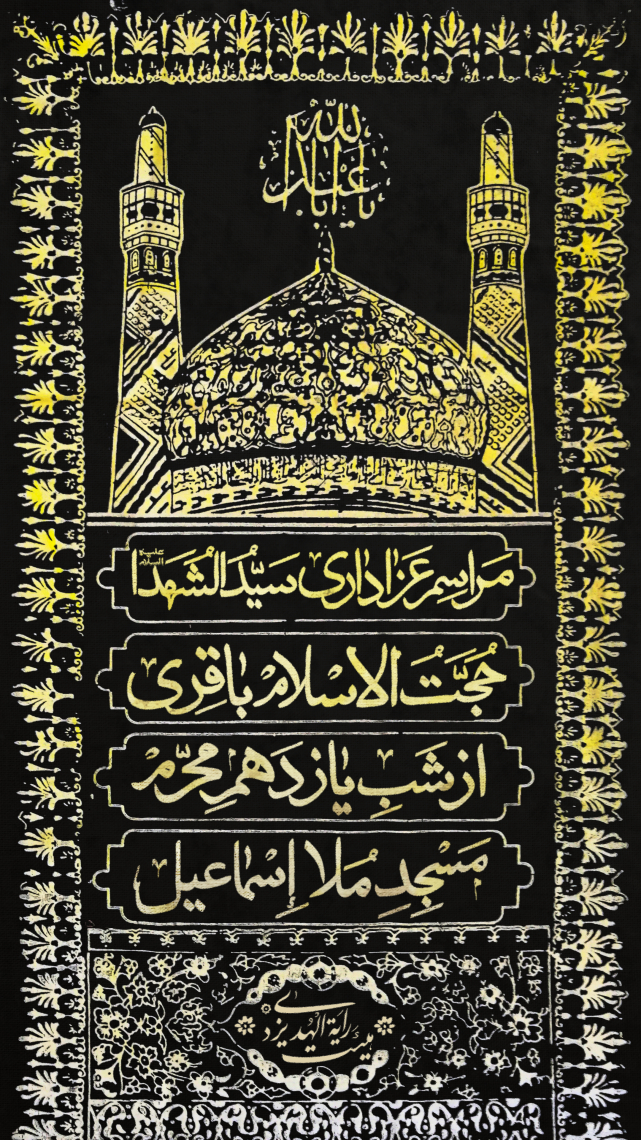 یا اباعبدالله
مراسم عزاداری سیّدالشهدا علیه السلام
حُجَّتُ الاسلام باقِری
از شَبِ یازدهمِ محرّم
مَسجِدِ مُلا إسماعیل
بیت رایة الهدی یزد